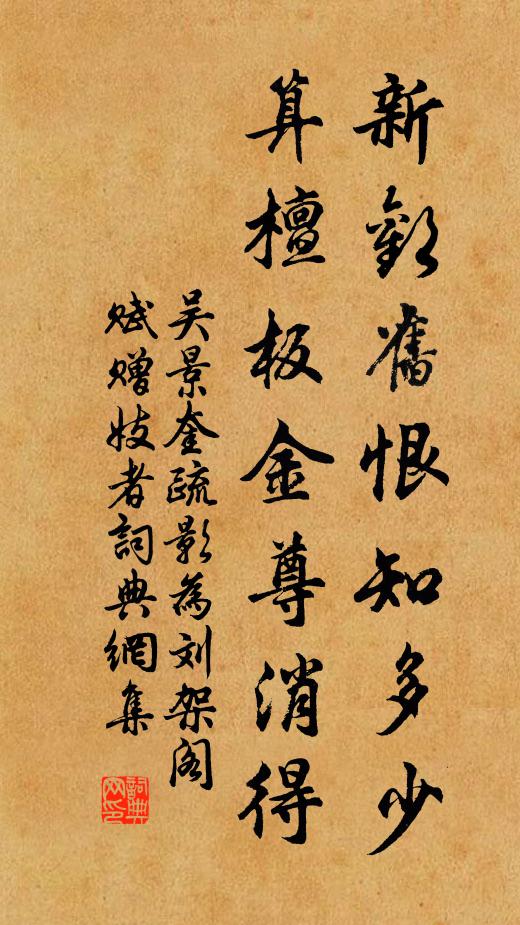 新歡舊恨知多少
算檀板金尊消得
吴景奎疏影為刘架阁
賦贈妓者詞典網集
詞典网印